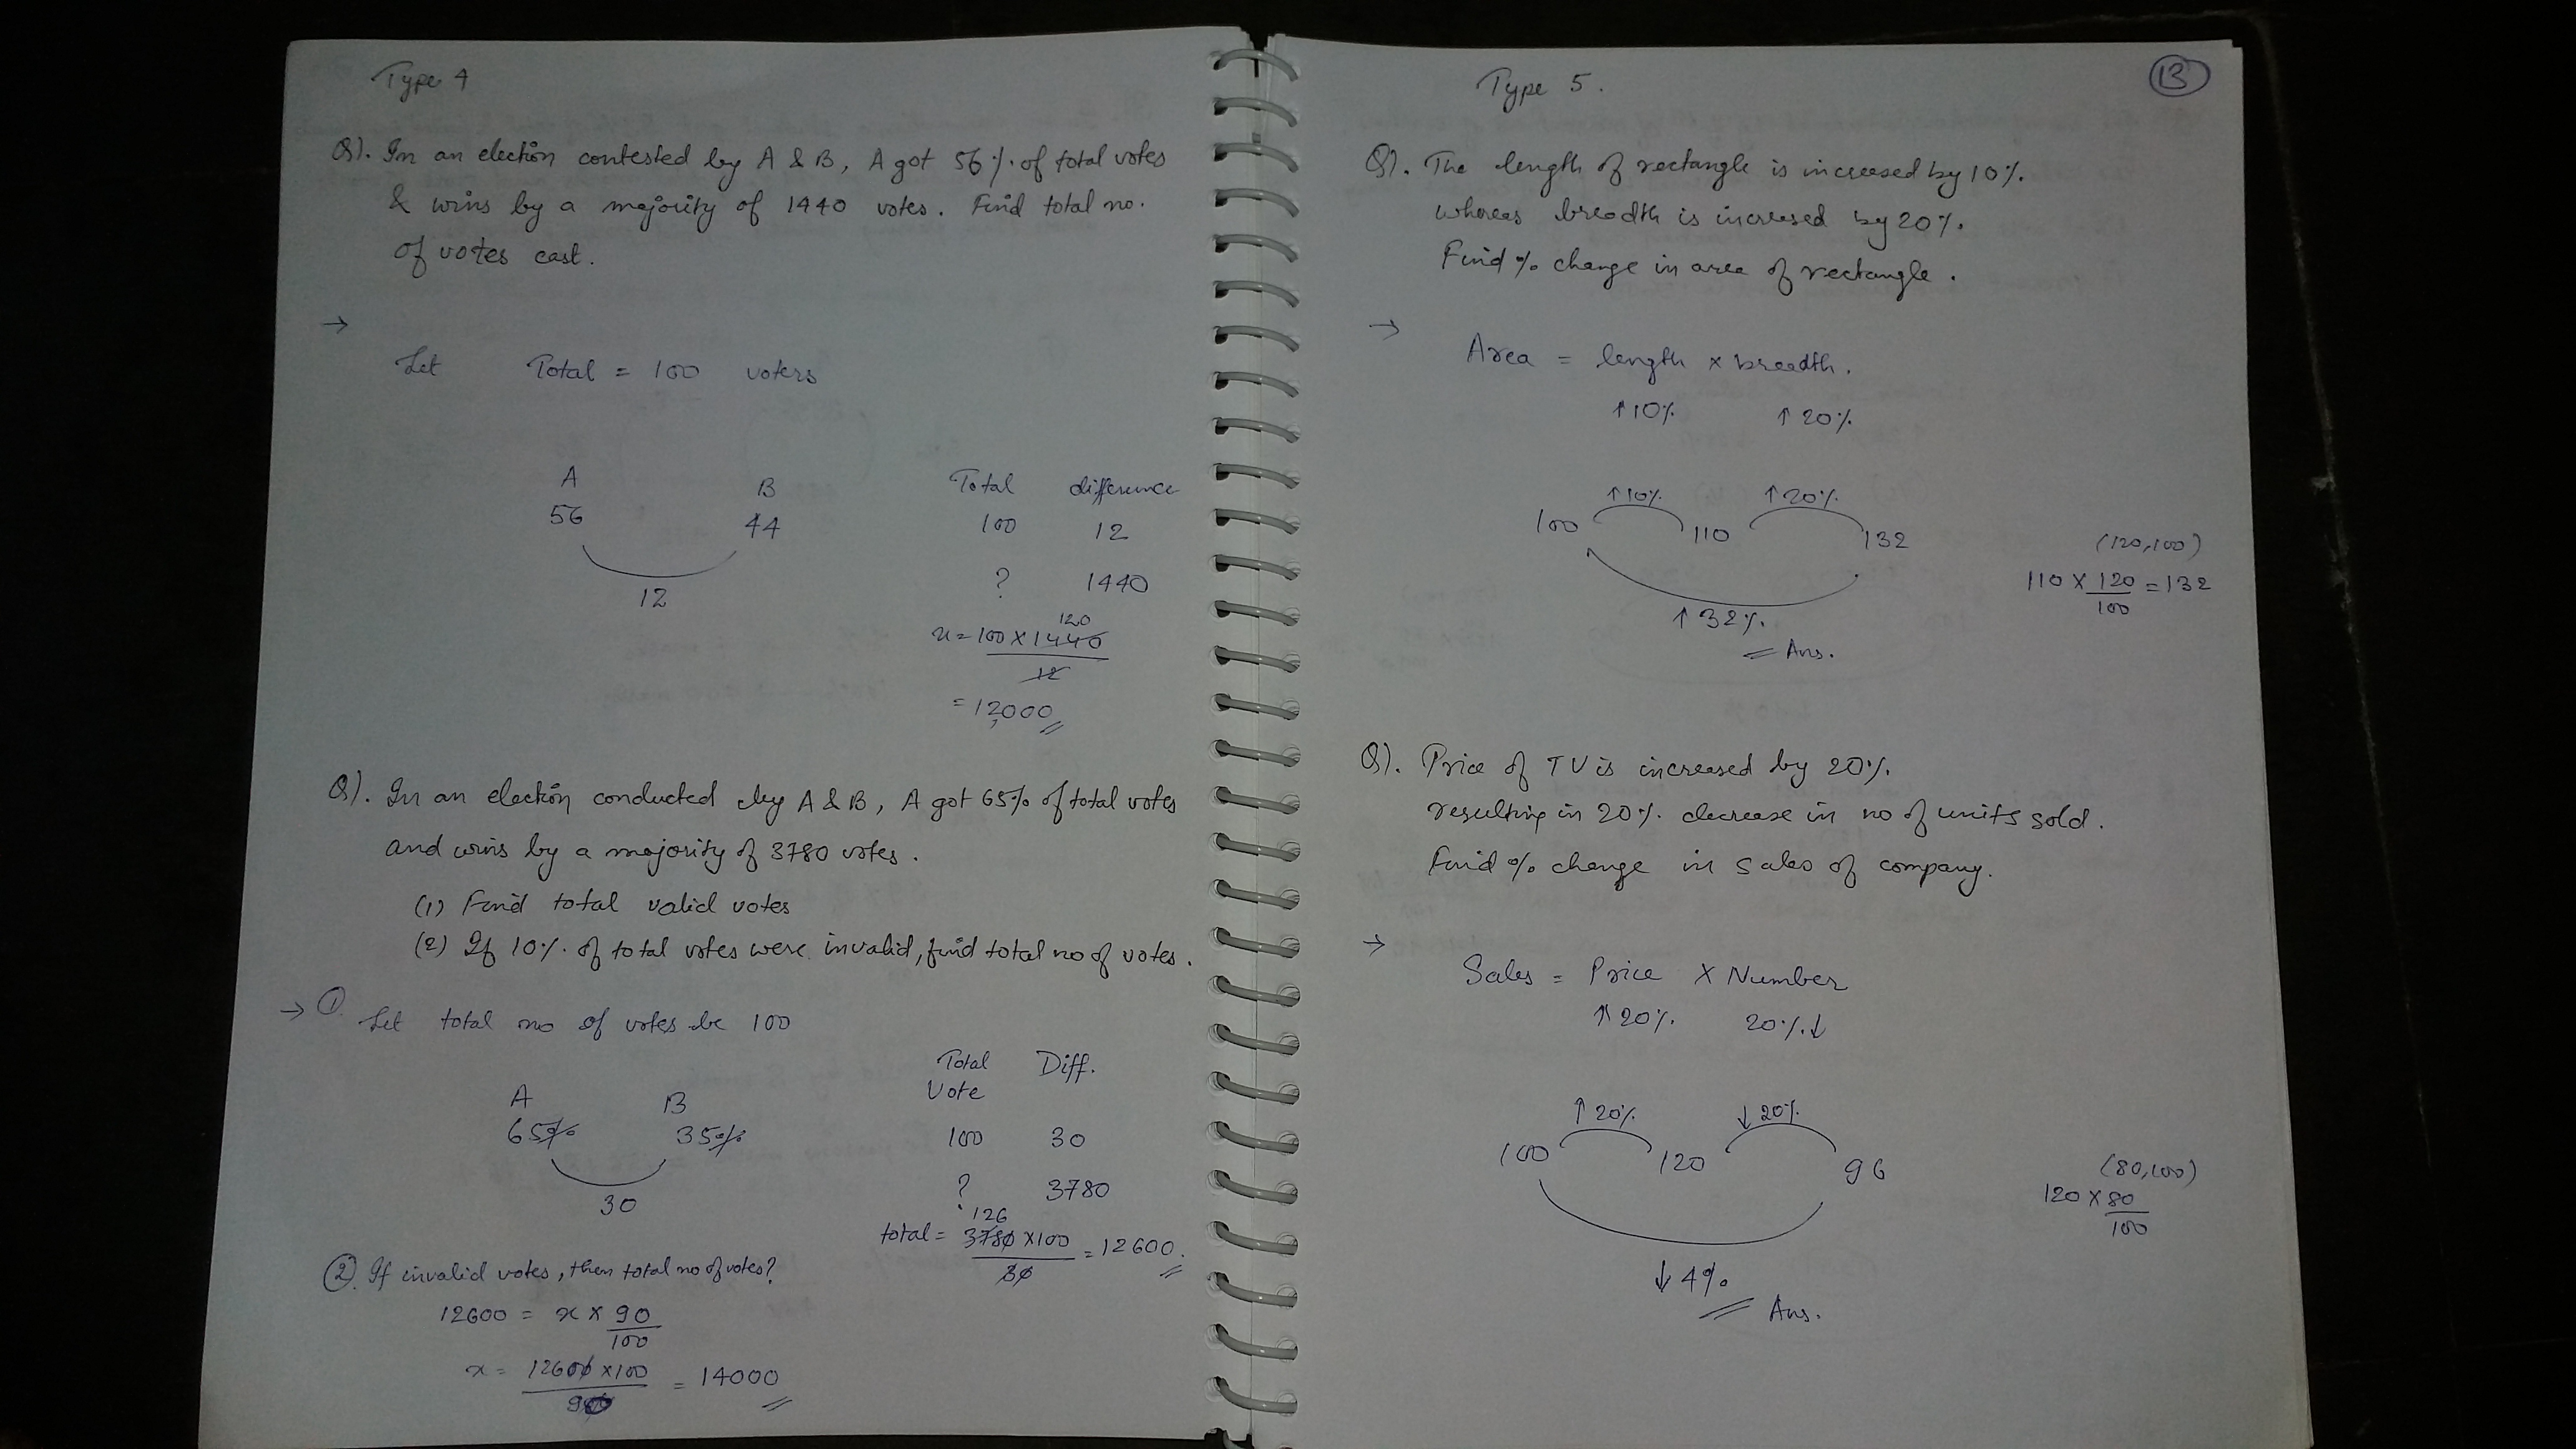 Type 4
Q). In an election contested by A & B, A got 56% of total votes
& wins by a majority of 1440 votes. Find total no.
of votes cast.
→
Let Total = 100 voters
A B
56 44
12
Total difference
100 12
? 1440
120
x = 100 x 1440
12
= 12,000
Q). In an election conducted by A & B, A got 65% of total votes
and wins by a majority of 3780 votes.
(1) Find total valid votes
(2) If 10% of total votes were invalid, find total no of votes.
→ ①
Let total no of votes be 100
A B
65% 35%
30
Total Diff.
Vote
100 30
? 3780
126
total = 3780 x 100 = 12600.
30
②. If invalid votes, then total no of votes?
12600 = x x 90
100
x = 12600 x 100 = 14000
90
Type 5.
13
Q). The length of rectangle is increased by 10%.
whereas breadth is incresed by 20%.
Find % change in area of rectangle.
→
Area = length x breadth.
↑10% ↑20%
↑10% ↑20%
100 110 132
↑32%.
Ans.
(120,100)
110 x 120 = 132
100
Q). Price of TV is increased by 20%.
resulting in 20% decrease in no of units sold.
Find % change in sales of company.
→
Sales = Price x Number
↑20% 20%↓
↑20% ↓20%
100 120 96
↓4%
Ans.
(80,100)
120 x 80
100